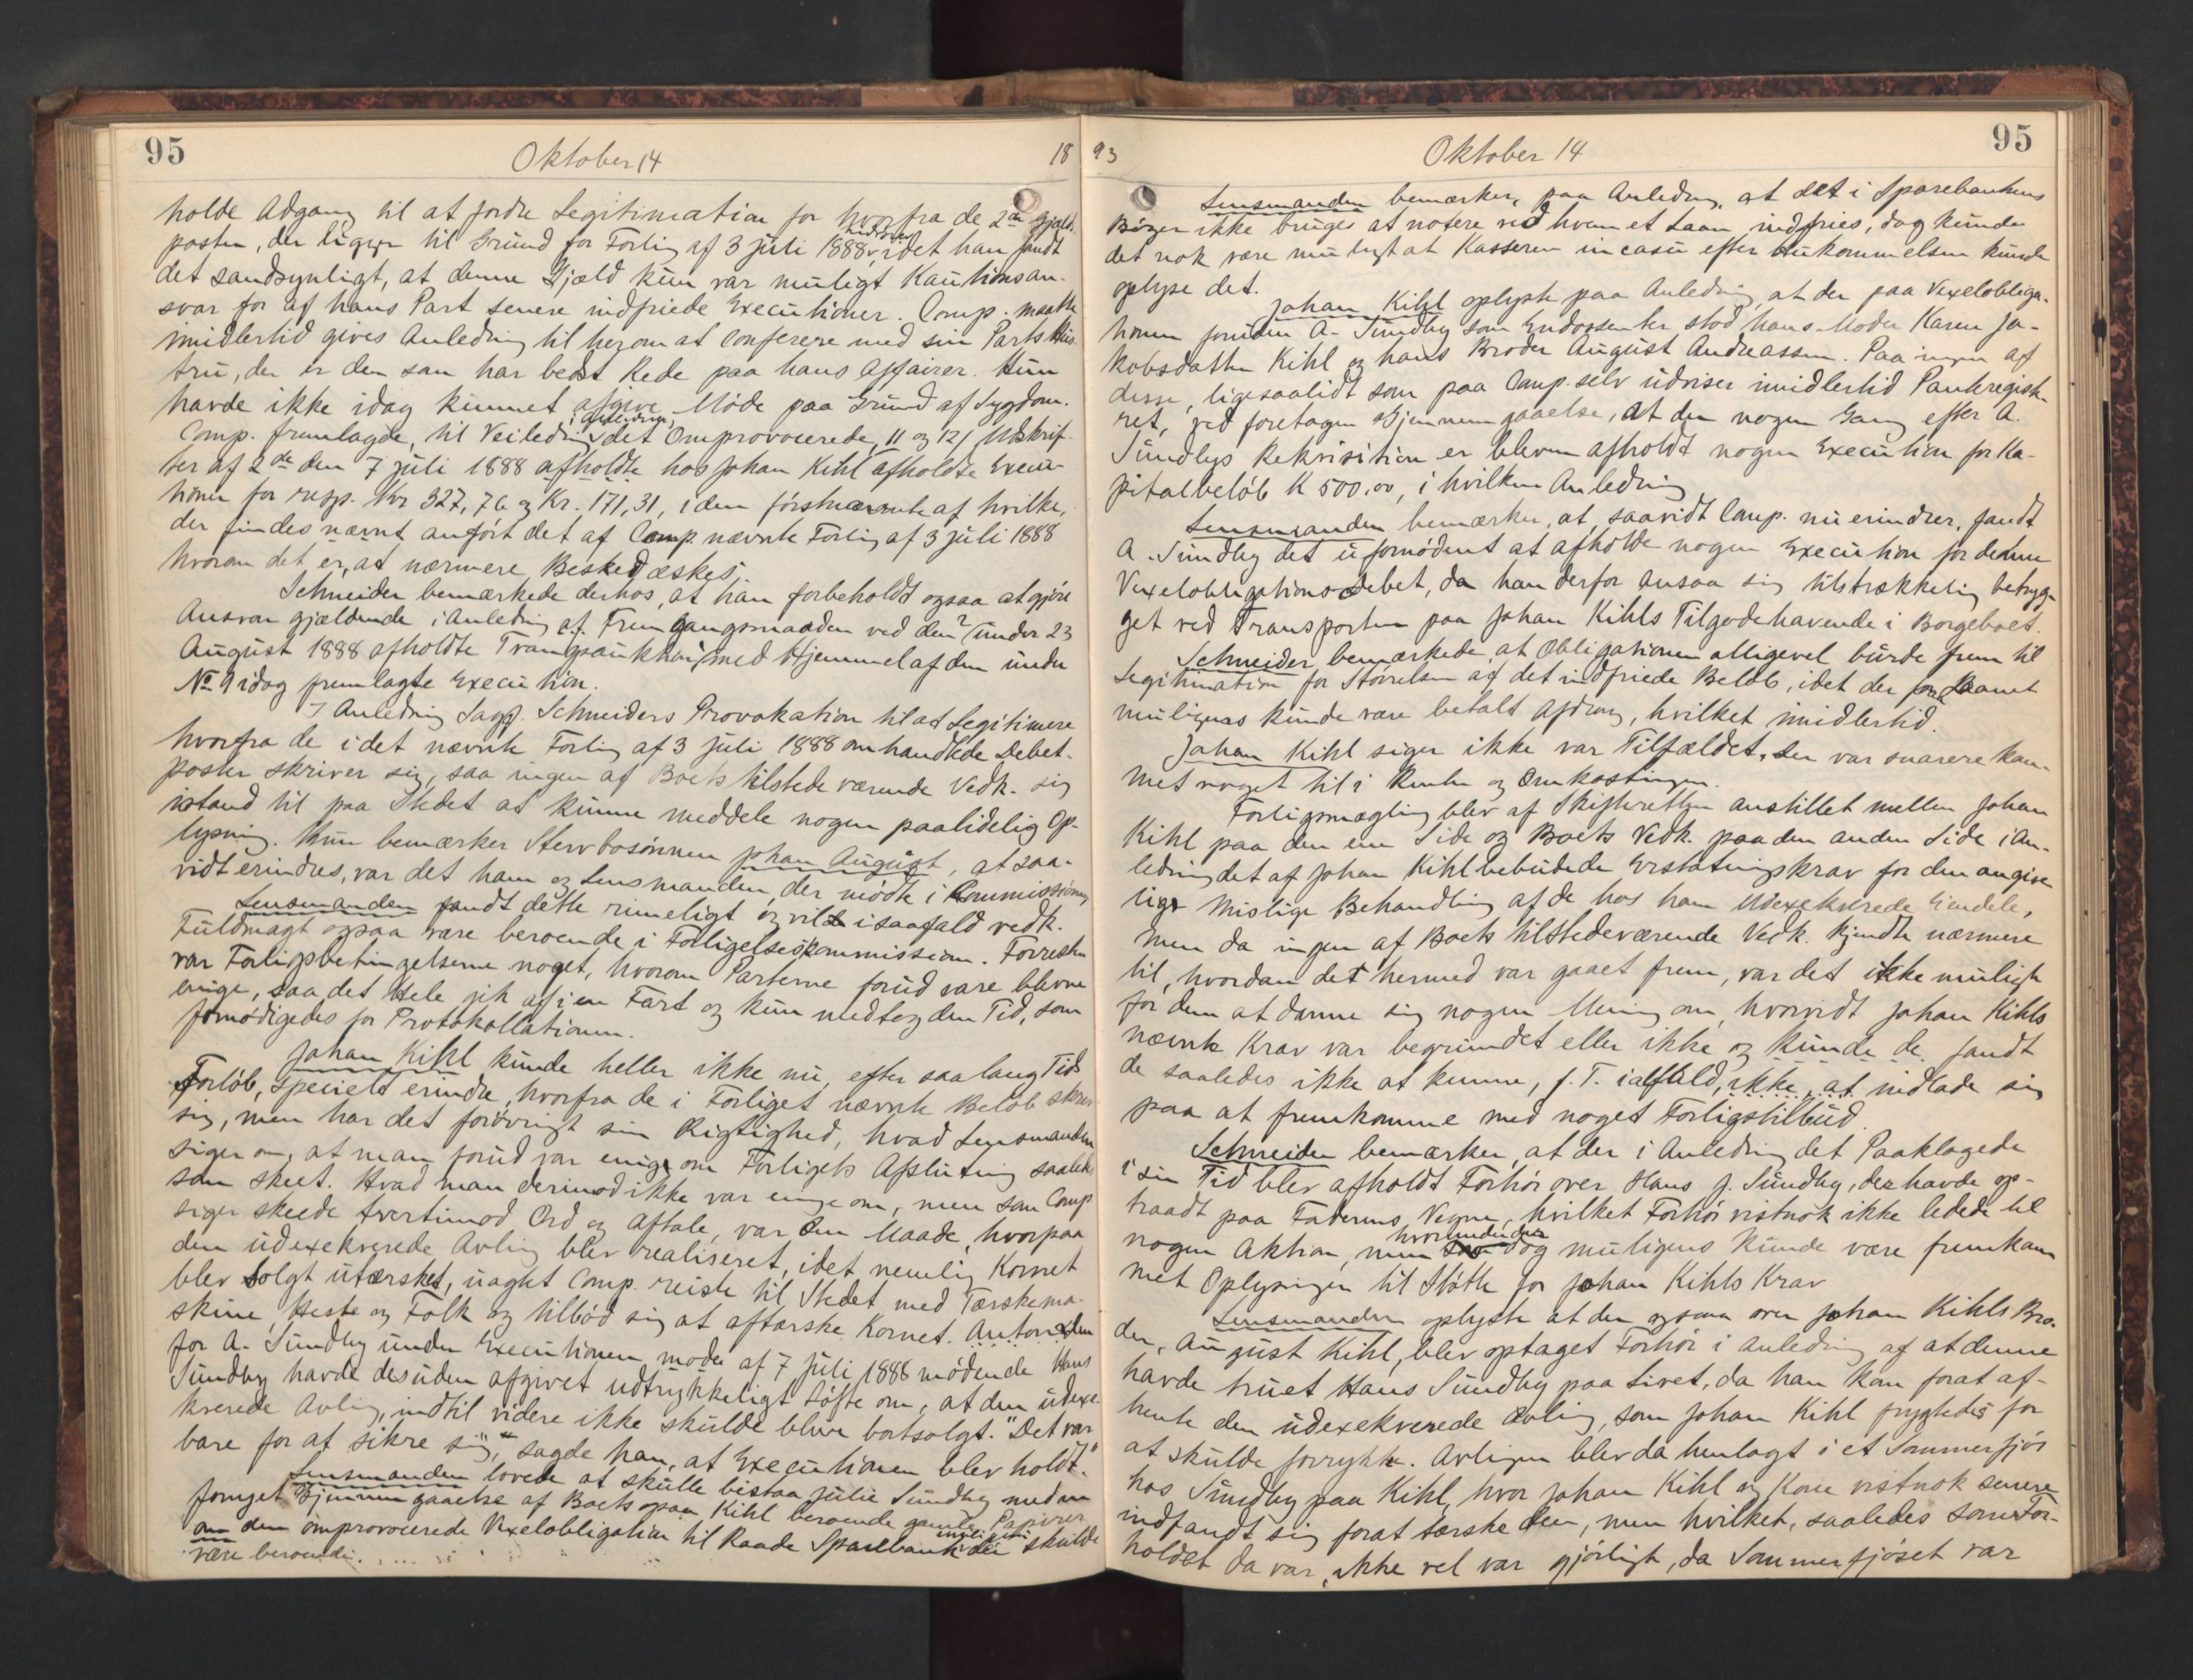 95
Oktober 14
18
holde Adgang til at fordre Legitimation for hvorfra de 2de Gjælds
poster, der ligger til Grund for Forlig af 3 juli 1888, hidrører idet han fandt
det sandsynligt, at denne Gjæld kun var muligt Kautionsan-
svar for af hans Part senere indfriede Executioner. Comp. maatte
imidlertid gives Anledning til herom at conferere med sin Parts Hus-
tru, der er den som har bedst Rede paa hans Affairer. Hun
havde ikke idag kunnet afgive Møde paa Grund af Sygdom.
Comp. fremlagde, til Veiledning i Anledning det Omprovocerede, 11 og 12/ Udskrif-
ter af 2de den 7 juli 1888 afholdte hos Johan Kihl afholdte Execu-
tioner for resp. Kr 327,76 og Kr. 171,31, i den førstnævnte af hvilke,
der findes nævnt anført det af Comp. nævnte Forlig af 3 juli 1888
hvorom det er, at nærmere Besked æskes.
Schneider bemærkede derhos, at han forbeholdt ogsaa at gjøre
Ansvar gjældende i Anledning af Fremgangsmaaden ved den? under 23
August 1888 afholdte Tvangsauktion med Hjemmel af den under
No 9 idag fremlagte Execution.
I Anledning Sagf. Schneiders Provokation til at Legitimere
hvorfra de i det nævnte Forlig af 3 juli 1888 omhandlede Debet-
poster skriver sig, saa ingen af Boets tilstedeværende Vedk. sig
istand til paa Stedet at kunne meddele nogen paalidelig Op-
lysning. Kun bemærker Stervbosønnen Johan August, at saa-
vidt erindres, var det ham og Lensmanden, der mødte i Commissionen
Lensmanden fandt dette rimeligt og vilde isaafald vedk.
Fuldmagt ogsaa være beroende i Forligelseskommission. Forresten
var Forligsbetingelserne noget, hvorom Parterne forud vare blevne
enige, saa det Hele gik af i en Fart og kun medtog den Tid, som
fornødigedes for Protokollationen.
Johan Kihl kunde heller ikke nu, efter saa lang Tids
Forløb, specielt erindre, hvorfra de i Forliget nævnte Beløb skrev
sig, men har det forøvrigt sin Rigtighed, hvad Lensmanden
siger om, at man forud var enige om Forligets Afslutning saaledes
som skeet. Hvad man derimod ikke var enige om, men som Comp
siger skeede tvertimod Ord og Aftale, var den Maade, hvorpaa
den udexekverede Avling blev realiseret, idet nemlig Kornet
blev solgt utærsket, uagtet Comp. reiste til Stedet med Tærskema-
skine, Heste og Folk og tilbød sig at aftærske Kornet. Anton den
for A. Sundby under Executionen mode af 7 juli 1888 mødende Hans
Sundby havde desuden afgivet udtrykkeligt Løfte om, at den udexe-
kverede Avling, indtil videre ikke skulde blive bortsolgt. "Det var
bare for at sikre sig," sagde han, at Executionen blev holdt."
Lensmanden lovede at skulle bistaa Julie Sundby med en
fornyet Gjennemgaaelse af Boets paa Kihl beroende gamle Papirer
om den omprovocerede Vexelobligation til Raade Sparebank muligens der skulde
være beroende.
93
Oktober 14
95
Lensmanden bemærker, paa Anledning, at det i Sparebankens
Bøger ikke bruges at notere ved hvem et Laan indfries, dog kunde
det nok være muligt at Kasseren in casu efter Hukommelsen kunde
oplyse det.
Johan Kihl oplyste paa Anledning, at der paa Vexelobliga-
tionen foruden A. Sundby som Endossenter stod hans Moder Karen Ja-
kobsdatter Kihl og hans Broder August Andreassen. Paa ingen af
disse, ligesaalidt som paa Comp. selv udviser imidlertid Panteregist-
ret, ved foretagen Gjennemgaaelse, at der nogen Gang efter A.
Sundbys Rekvisition er bleven afholdt nogen Execution for Ka-
pitalbeløb K 500,00, i hvilken Anledning
Lensmanden bemærker, at saavidt Comp. nu erindrer, fandt
A. Sundby det ufornødent at afholde nogen Execution for denne
Vexelobligations Debet, da han derfor ansaa sig tilstrækkelig betryg-
get ved Transporten paa Johan Kihls Tilgodehavende i Borgeboet.
Schneider bemærkede, at Obligationen alligevel burde frem til
Legitimation for Størrelsen af det indfriede Beløb, idet der paa Laanet
muligens kunde være betalt Afdrag, hvilket imidlertid.
Johan Kihl siger ikke var Tilfældet. Der var snarere kom-
met noget til i Renter og Omkostninger.
Forligsmægling blev af Skifteretten anstillet mellem Johan
Kihl paa den ene Side og Boets Vedk. paa den anden Side i An-
ledning det af Johan Kihl bebudede Erstatningskrav for den angive-
lige Mislige Behandling af de hos ham Udexekverede Eiendele,
men da ingen af Boets tilstedeværende Vedk. kjendte nærmere
til, hvordan det hermed var gaaet frem, var det ikke muligt
for dem at danne sig nogen Mening om, hvorvidt Johan Kihls
nævnte Krav var begrundet eller ikke og kunde de fandt
de saaledes ikke at kunne, f. T. ialfald, ikke at indlade sig
paa at fremkomme med noget Forligstilbud.
Schneider bemærker, at der i Anledning det Paaklagede
i sin Tid blev afholdt Forhør over Hans J. Sundby, der havde op-
traadt paa Faderens Vegne, hvilket Forhør vistnok ikke ledede til
nogen Aktion, men hvorunder der dog muligens kunde være fremkom
met Oplysninger til Støtte for Johan Kihls Krav
Lensmanden oplyste at der ogsaa over Johan Kihls Bro-
der, August Kihl, blev optaget Forhør i Anledning af at denne
havde truet Hans Sundby paa Livet, da han kom forat af-
hente den udexekverede Avling, som Johan Kihl frygtedes for
at skulde forrykke. Avlingen blev da henlagt i et Sommerfjøs
hos Sundby paa Kihl, hvor Johan Kihl og Kone vistnok senere
indfandt sig forat tærske den, men hvilket, saaledes som For-
holdet da var, ikke vel var gjørligt, da Sommerfjøset var